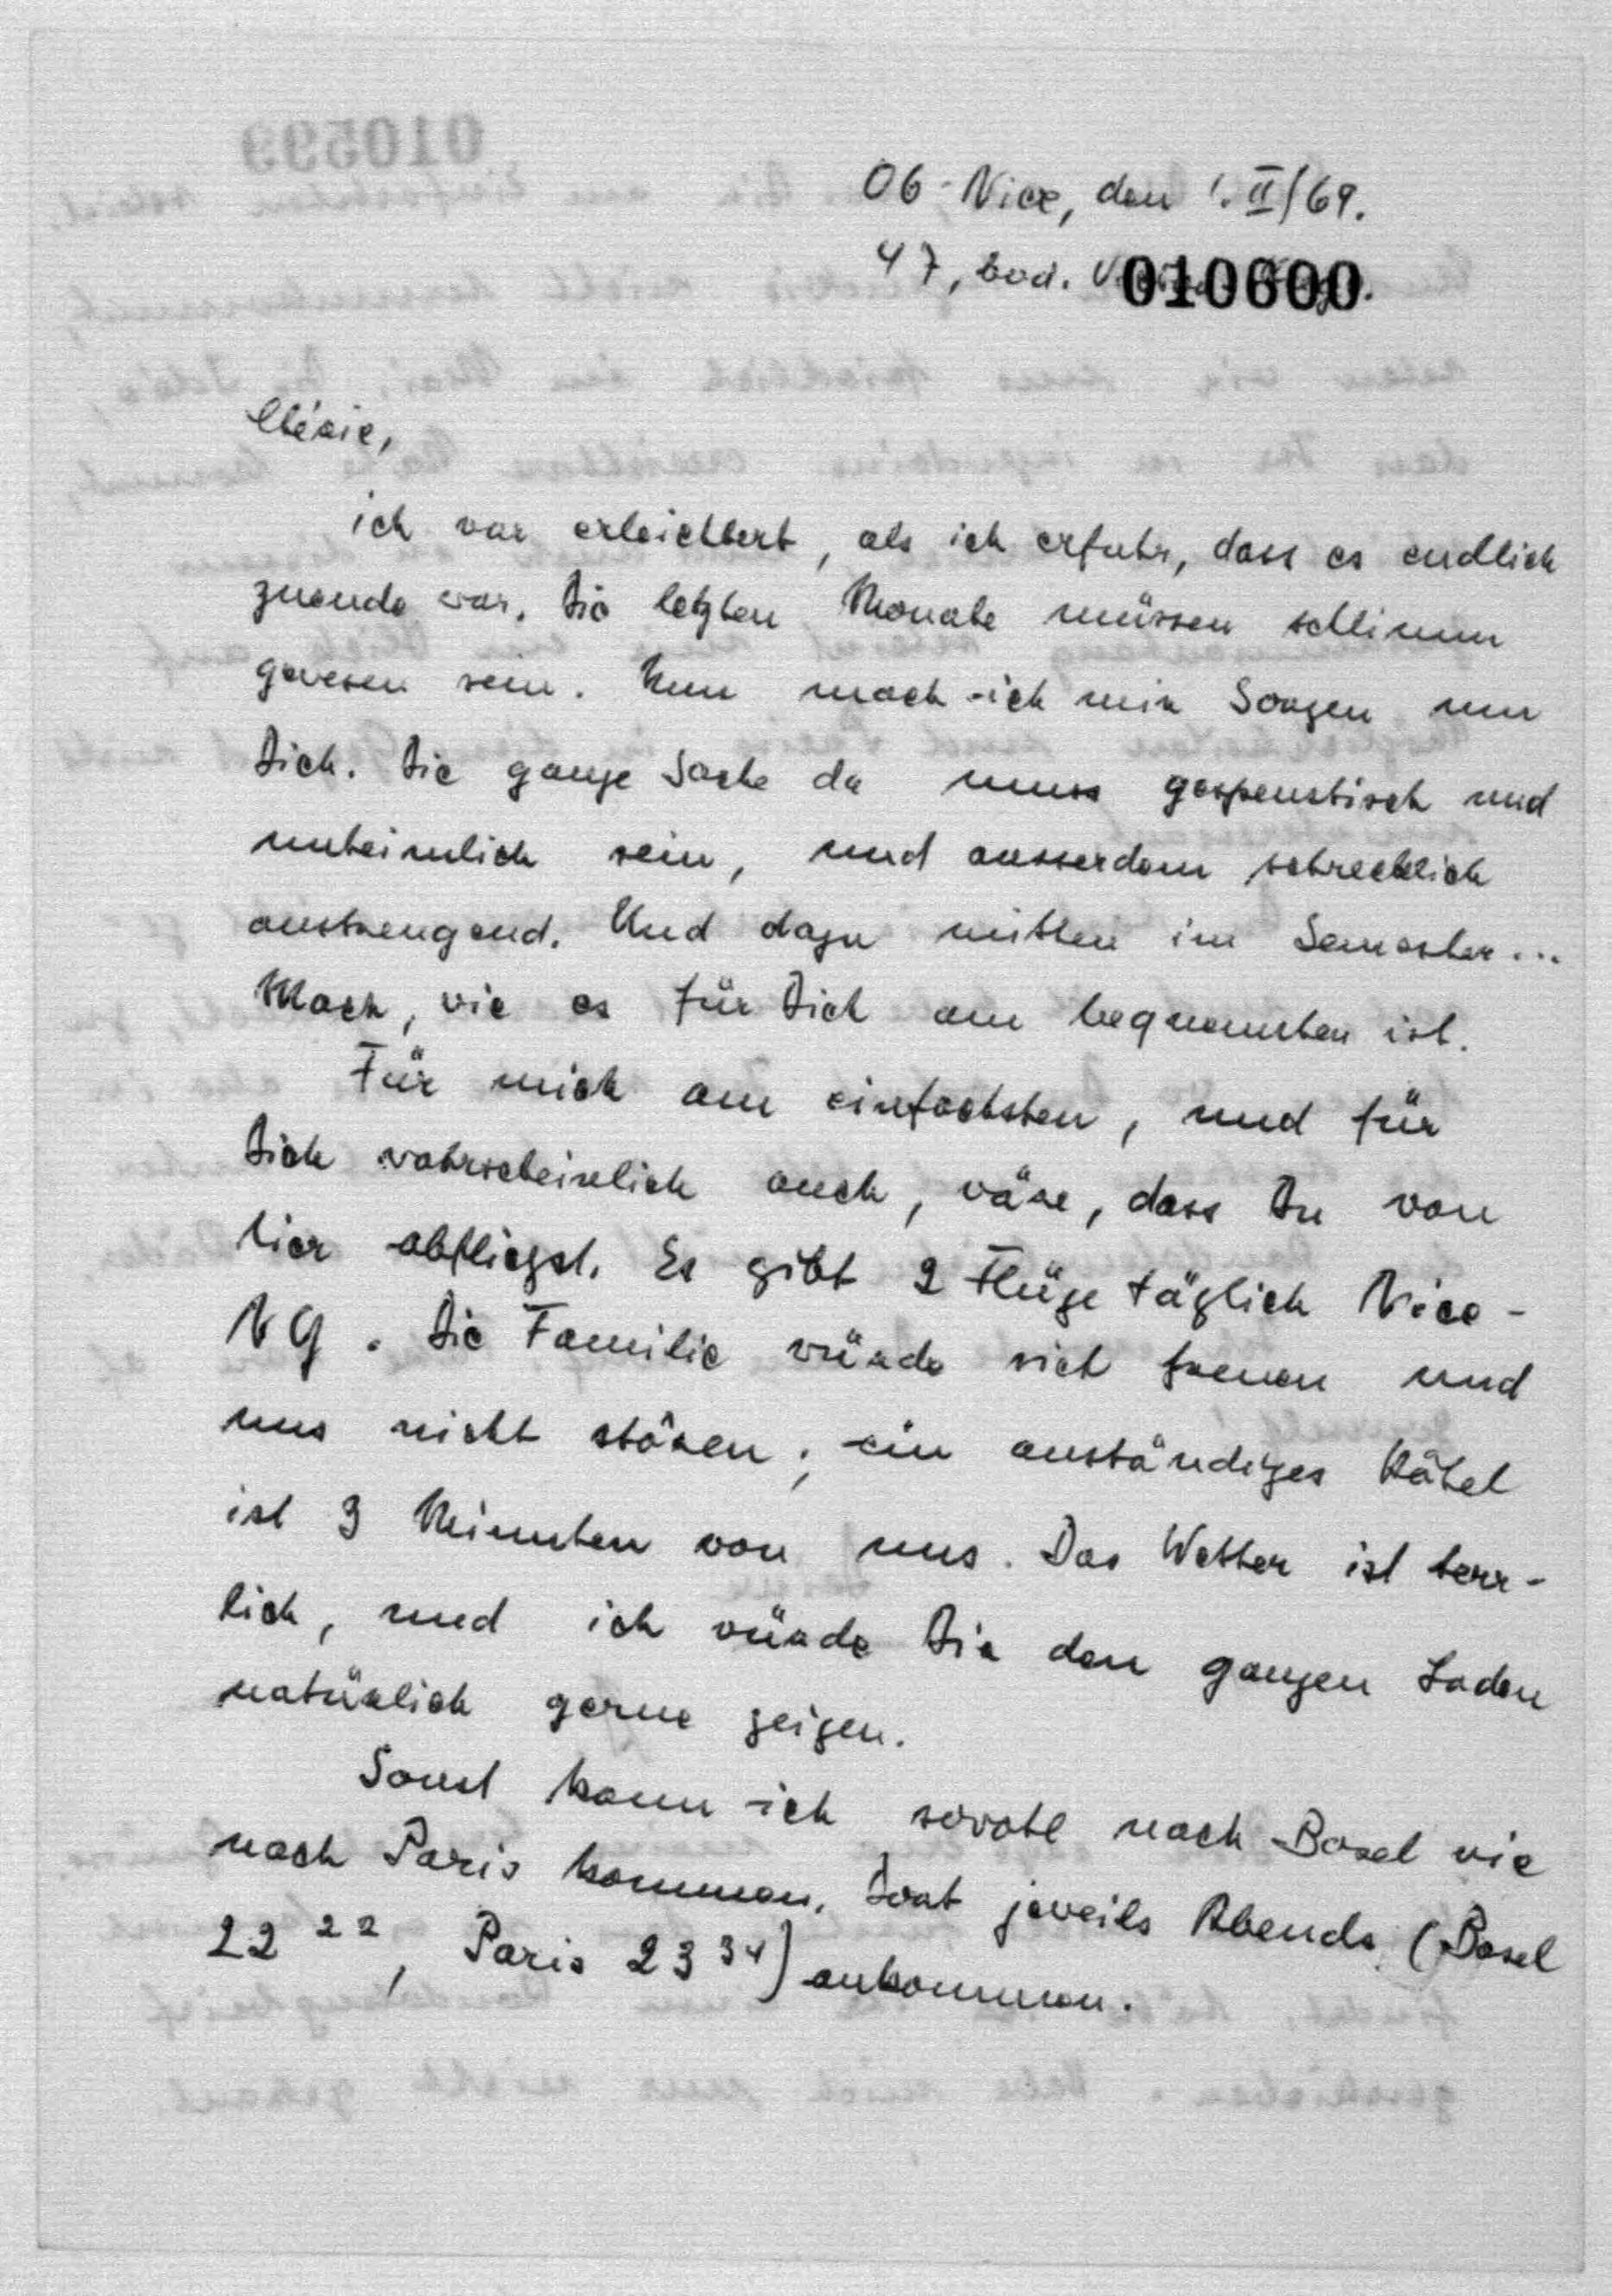 06 - Nice, den 1. II/69.
47, bvd. 010600
Chérie,
ich war erleichtert, als ich erfuhr, dass es endlich
zuende war. Die letzten Monate müssen schlimm
gewesen sein. Nun mach ich mir Sorgen um
Dich. Die ganze Sache da muss gespenstisch und
unheimlich sein, und ausserdem schrecklich
anstrengend. Und dazu mitten im Semester...
Mach, wie es für Dich am bequemsten ist.
Für mich am einfachsten, und für
Dich wahrscheinlich auch, wäre, dass Du von
hier abfliegst. Es gibt 2 Flüge täglich Nice -
NY. Die Familie würde sich freuen und
uns nicht stören; ein anständiges Hôtel
ist 3 Minuten von uns. Das Wetter ist herr-
lich, und ich würde Dir den ganzen Laden
natürlich gerne zeigen.
Sonst kann ich sowohl nach Basel wie
nach Paris kommen. Dort jeweils Abends (Basel
22 22, Paris 23 34) ankommen.